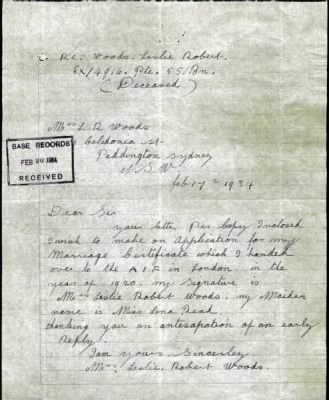 Re: Woods. Leslie Robert.
Ex/4916. Pte. 55/Bn.
(Deceased)
Mrs L R Woods
Caledonea St-
Paddington Sydney
N.S.W.
feb 17th 1934
BASE RECORDS
FEB 20 1934
RECEIVED
Dear Sir
your letter Per Copey Inclosed
I wish to make an Application for my
Marriage Certificate which I handed
over to the A I F in London in the
year of 1920. my Signature is
Mrs Leslie Robert Woods. my Maiden
name is Miss Read
thanking you an antesapation of an early
Reply.
I am yours Sincerley
Mrs Leslie. Robert Woods.